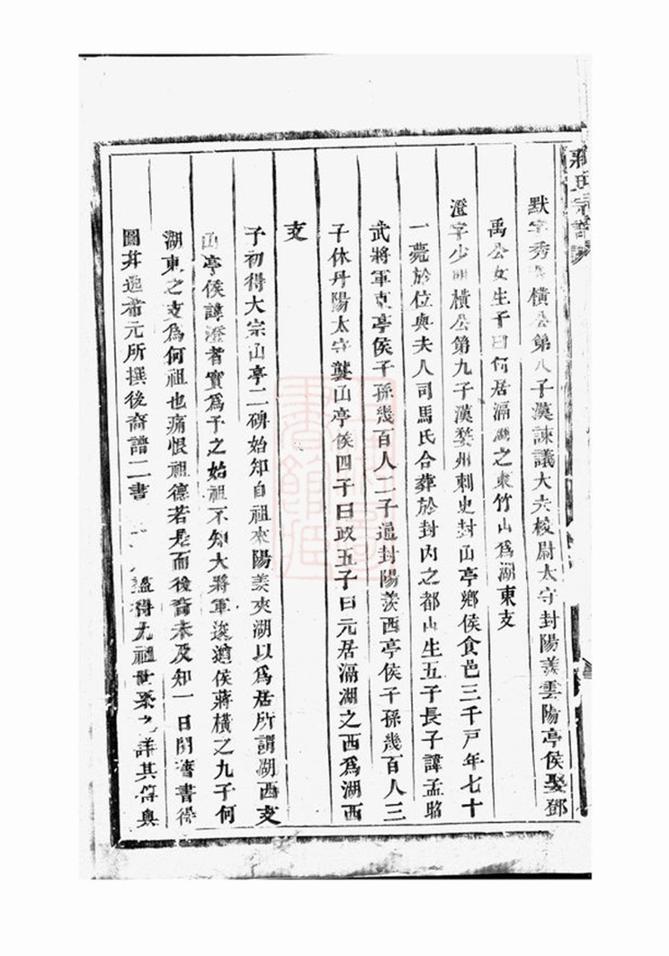 蔣氏宗譜
默字秀橫公第八子漢諫議大夫校尉太守封陽羨雲陽亭侯娶鄧
禹公女生子曰何居滆湖之東竹山爲湖東支
澄字少明橫公第九子漢婺州刺史封山亭鄉侯食邑三千戸年七十
一薨於位與夫人司馬氏合葬於封内之都山生五子長子諱孟
武將軍亭侯子孫幾百人二子通封陽羨西亭侯子孫幾百人三
子休丹陽太守襲山亭侯四子曰政五子曰元居滆湖之西爲湖西
支
子初得大宗山亭二碑始知自祖來陽羨夾湖以爲居所謂湖西支
山亭侯諱澄者實爲予之始祖不知大將軍逡遒侯蔣橫之九子何
湖東之支爲何祖也痛恨祖德若是而後裔未及知一日閱書得
圖并希元所撰後裔譜二書得九祖世系之詳其傳與